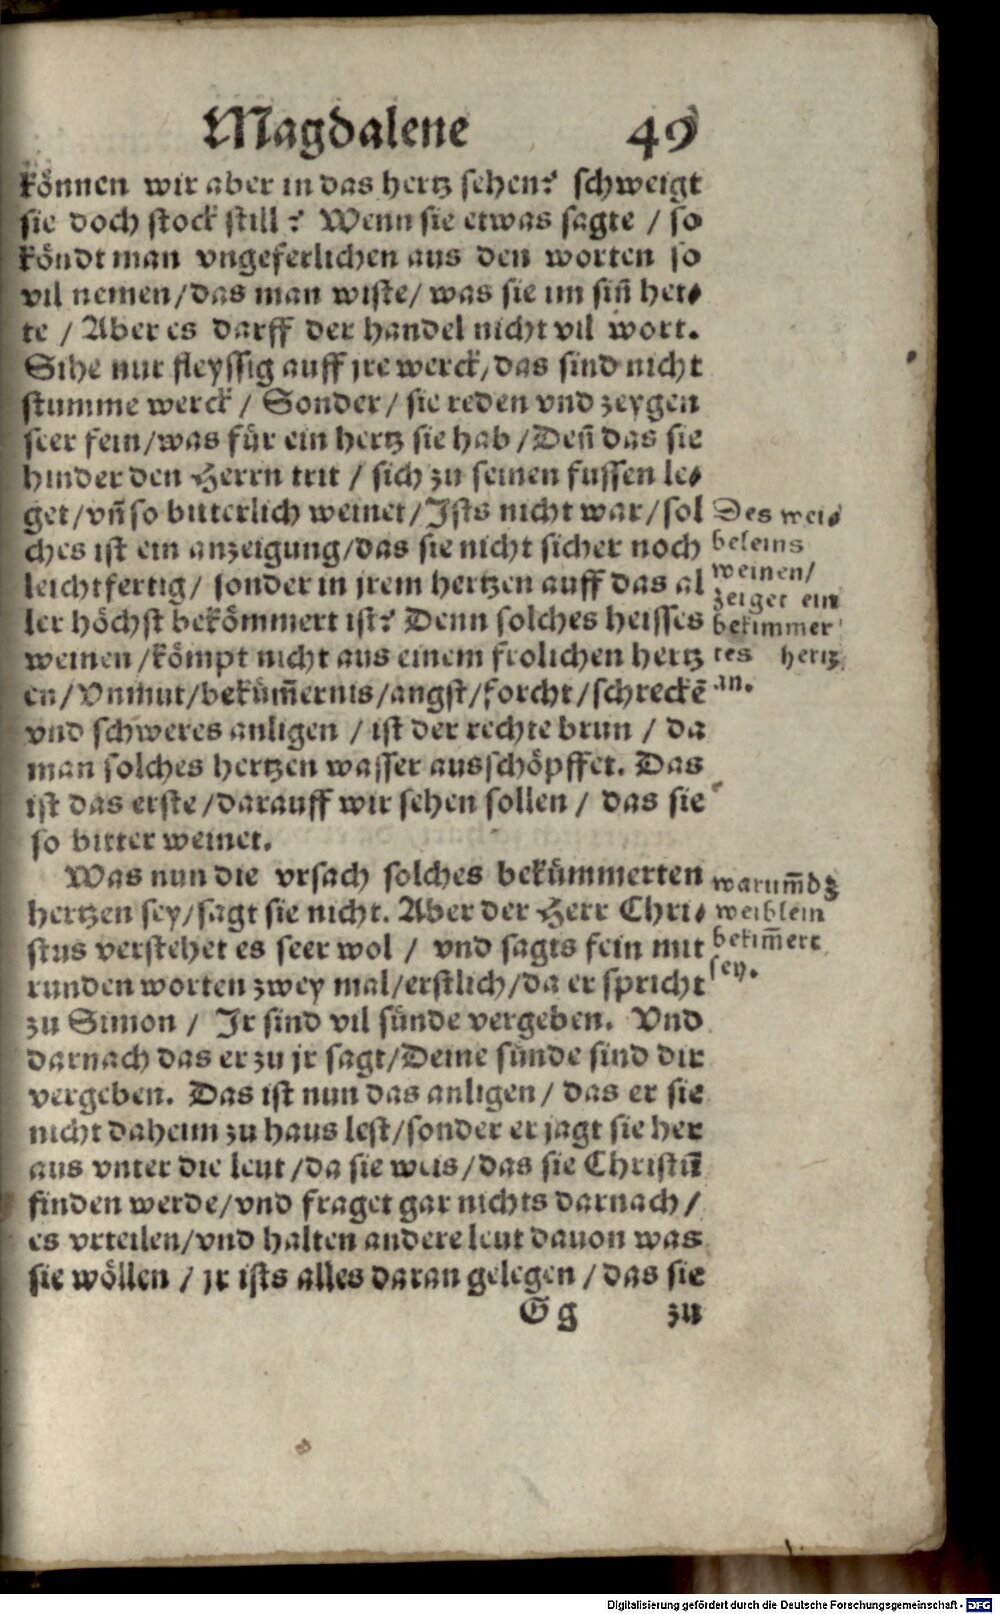 Magdalene 49
können wir aber in das hertz sehen? schweigt
sie doch stock still? Wenn sie etwas sagte / so
köndt man vngeferlichen aus den worten so
vil nemen/das man wiste/ was sie im sin̄ het⸗
te / Aber es darff der handel nicht vil wort.
Sihe nur fleyssig auff jre werck/das sind nicht
stumme werck / Sonder/ sie reden vnd zeygen
seer fein/was für ein hertz sie hab /Den̄ das sie
hinder den Herrn trit / sich zu seinen fussen le⸗
get/vn̄ so bitterlich weinet/Ists nicht war/sol
ches ist ein anzeigung/das sie nicht sicher noch
leichtfertig/ sonder in jrem hertzen auff das al
ler höchst bekömmert ist? Denn solches heisses
weinen/kömpt nicht aus einem frolichen hertz
en/Vnmut/beküm̄ernis/angst/forcht/schreckē
vnd schweres anligen / ist der rechte brun / da
man solches hertzen wasser ausschöpffet. Das
ist das erste/darauff wir sehen sollen / das sie
so bitter weinet.
Des wei⸗
beleins
weinen/
zeiget ein
bekimmer
tes hertz
an.
Was nun die vrsach solches bekümmerten
hertzen sey/sagt sie nicht. Aber der Herr Chri⸗
stus verstehet es seer wol / vnd sagts fein mit
runden worten zwey mal/erstlich/da er spricht
zu Simon / Jr sind vil sünde vergeben. Vnd
darnach das er zu jr sagt/Deine sünde sind dir
vergeben. Das ist nun das anligen/ das er sie
nicht daheim zu haus lest/sonder er jagt sie her
aus vnter die leut/da sie weis/das sie Christū
finden werde/vnd fraget gar nichts darnach/
es vrteilen/vnd halten andere leut dauon was
sie wöllen / jr ists alles daran gelegen / das sie
warum̄ dz
weiblein
bekim̄ert
sey.
Gg zu
Digitalisierung gefördert durch die Deutsche Forschungsgemeinschaft - DFG